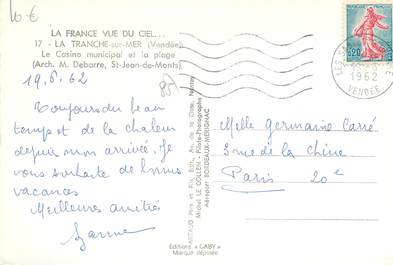 10 €
LA FRANCE VUE DU CIEL...
17 - LA TRANCHE-sur-MER (Vendée)
Le Casino municipal et la plage
(Arch. M. Debarre, St-Jean-de-Monts)
19.6.62
Toujours du beau
temps et de la chaleur
depuis mon arrivée. Je
vous souhaite de bonnes
vacances
Meilleures amitiés
ARTAUD Père et Fils, Édit., Av. de la Close, Nantes
Michel LE COLLEN - Pilote-Photographe
Aéroport BORDEAUX-MERIGNAC
Editions "GABY"
Marque déposée
0,20
1962
VENDEE
Melle Germaine Carré
3 rue de la Chine
Paris 20e